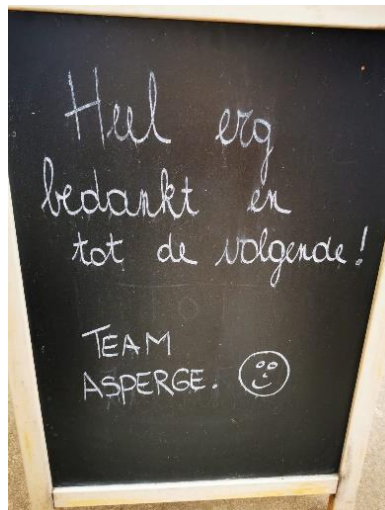 Heel erg
bedankt en
tot de volgende!
TEAM
ASPERGE.